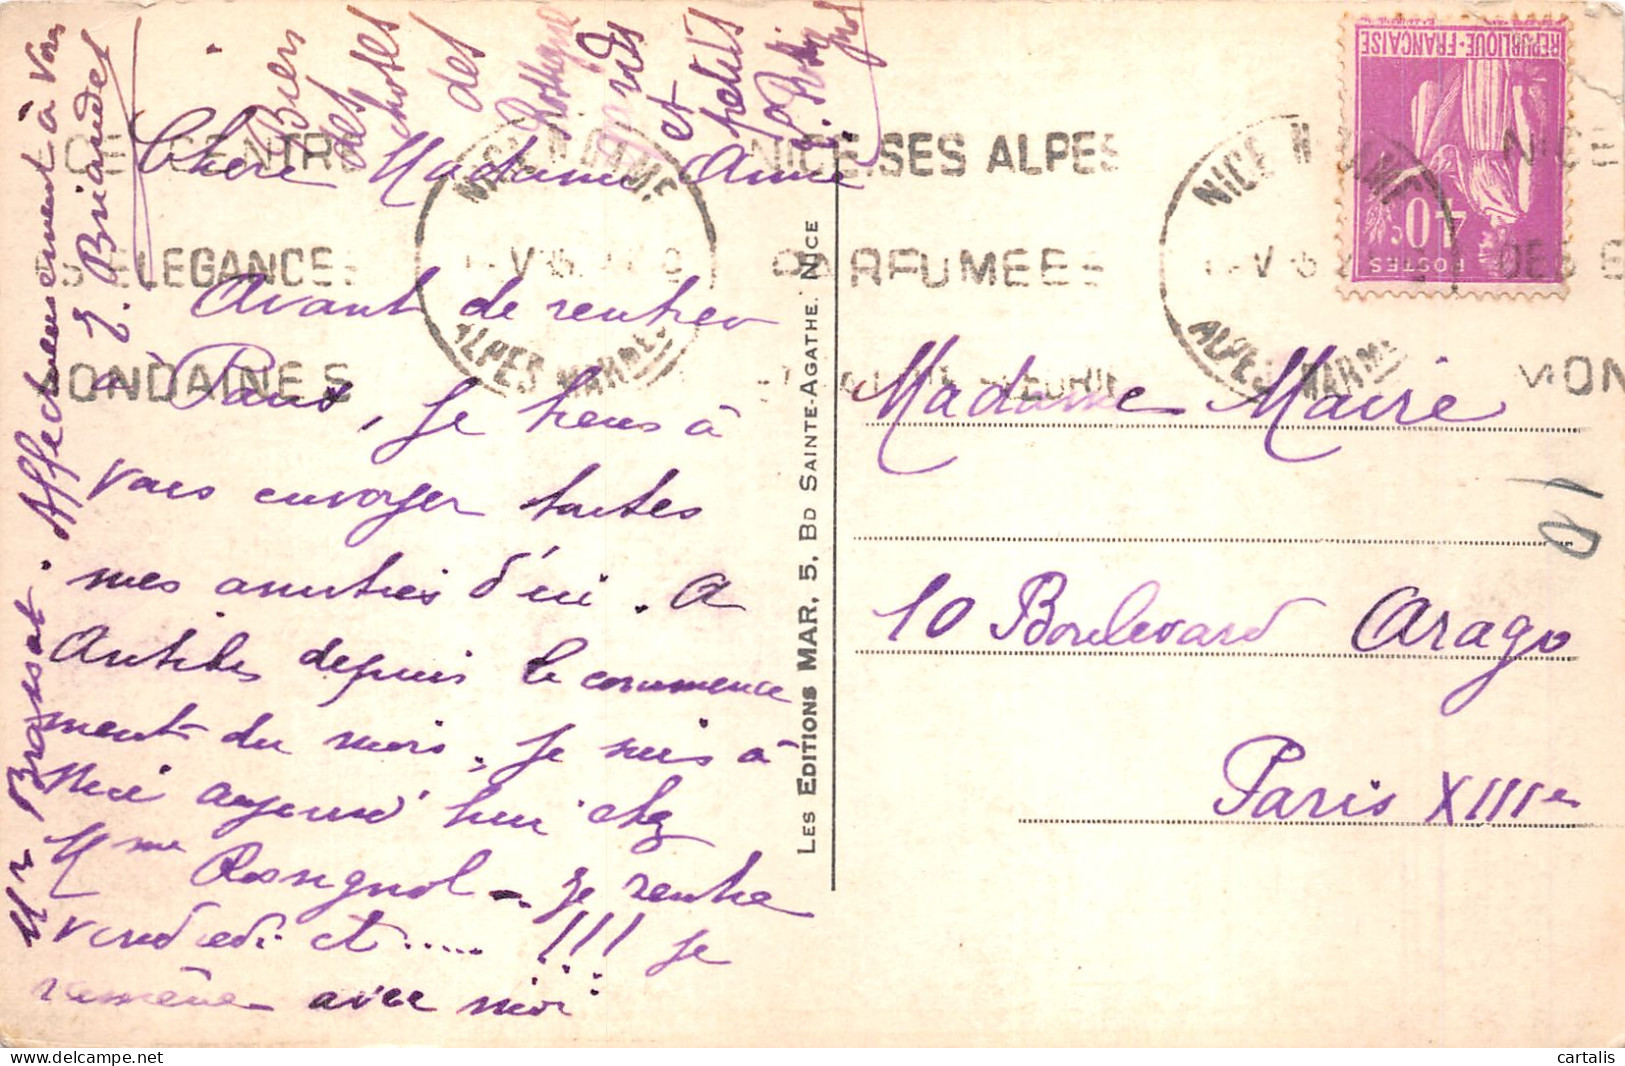 Chère Madame Amie
Avant de rentrer
à Paris, je tiens à
vous envoyer toutes
mes amitiés d'ici. A
Antibes depuis le commence
ment du mois, je suis à
Nice aujourd'hui chez
Mme Rossignol - je rentre
vendredi et ..... !!! je
ramène avec moi
Mr Brossat. Affectueusement à vous
E. Briandet
Bien
des
choses
des
Rossignol
grands
et
petits
P. Rossignol
LES EDITIONS MAR, 5, BD SAINTE-AGATHE. NICE
NICE SES ALPES
PARFUMEES
DES CENTR
ELEGANCES
ONDAINES
NICE N. DAME
ALPES MARMES
NICE N. DAME
ALPES MARMES
NICE
DES E
MON
REPUBLIQUE-FRANÇAISE
40c
POSTES
Madame Maire
10 Boulevard Arago
Paris XIIIe
cartalis